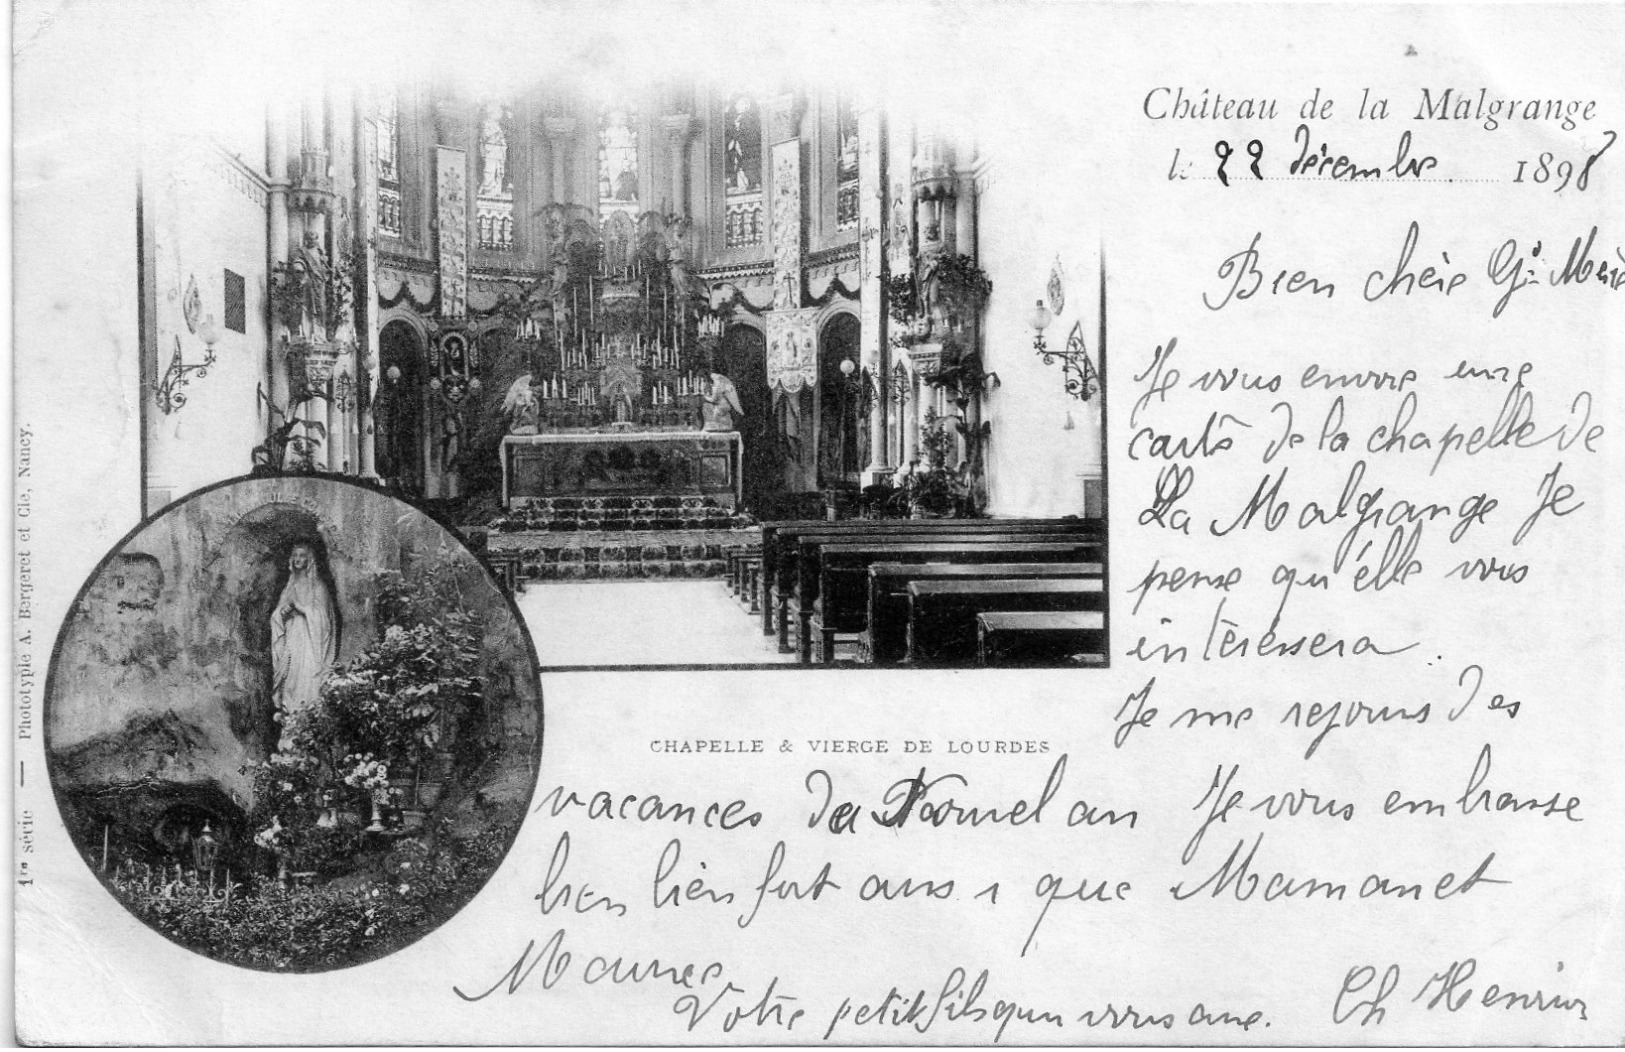 Château de la Malgrange
le 22 décembre 1898
Bien chère Gd Mère
Je vous envoie une
carte de la chapelle de
La Malgrange Je
pense qu'élle vous
intèréssera.
Je me rejouis des
CHAPELLE & VIERGE DE LOURDES
vacances du Nouvel an Je vous embrasse
bien bien fort aussi que Maman et
Maurice
Votre petit fils qui vous aime. Ch
1re série — Phototypie A. Bergeret et Cie, Nancy.